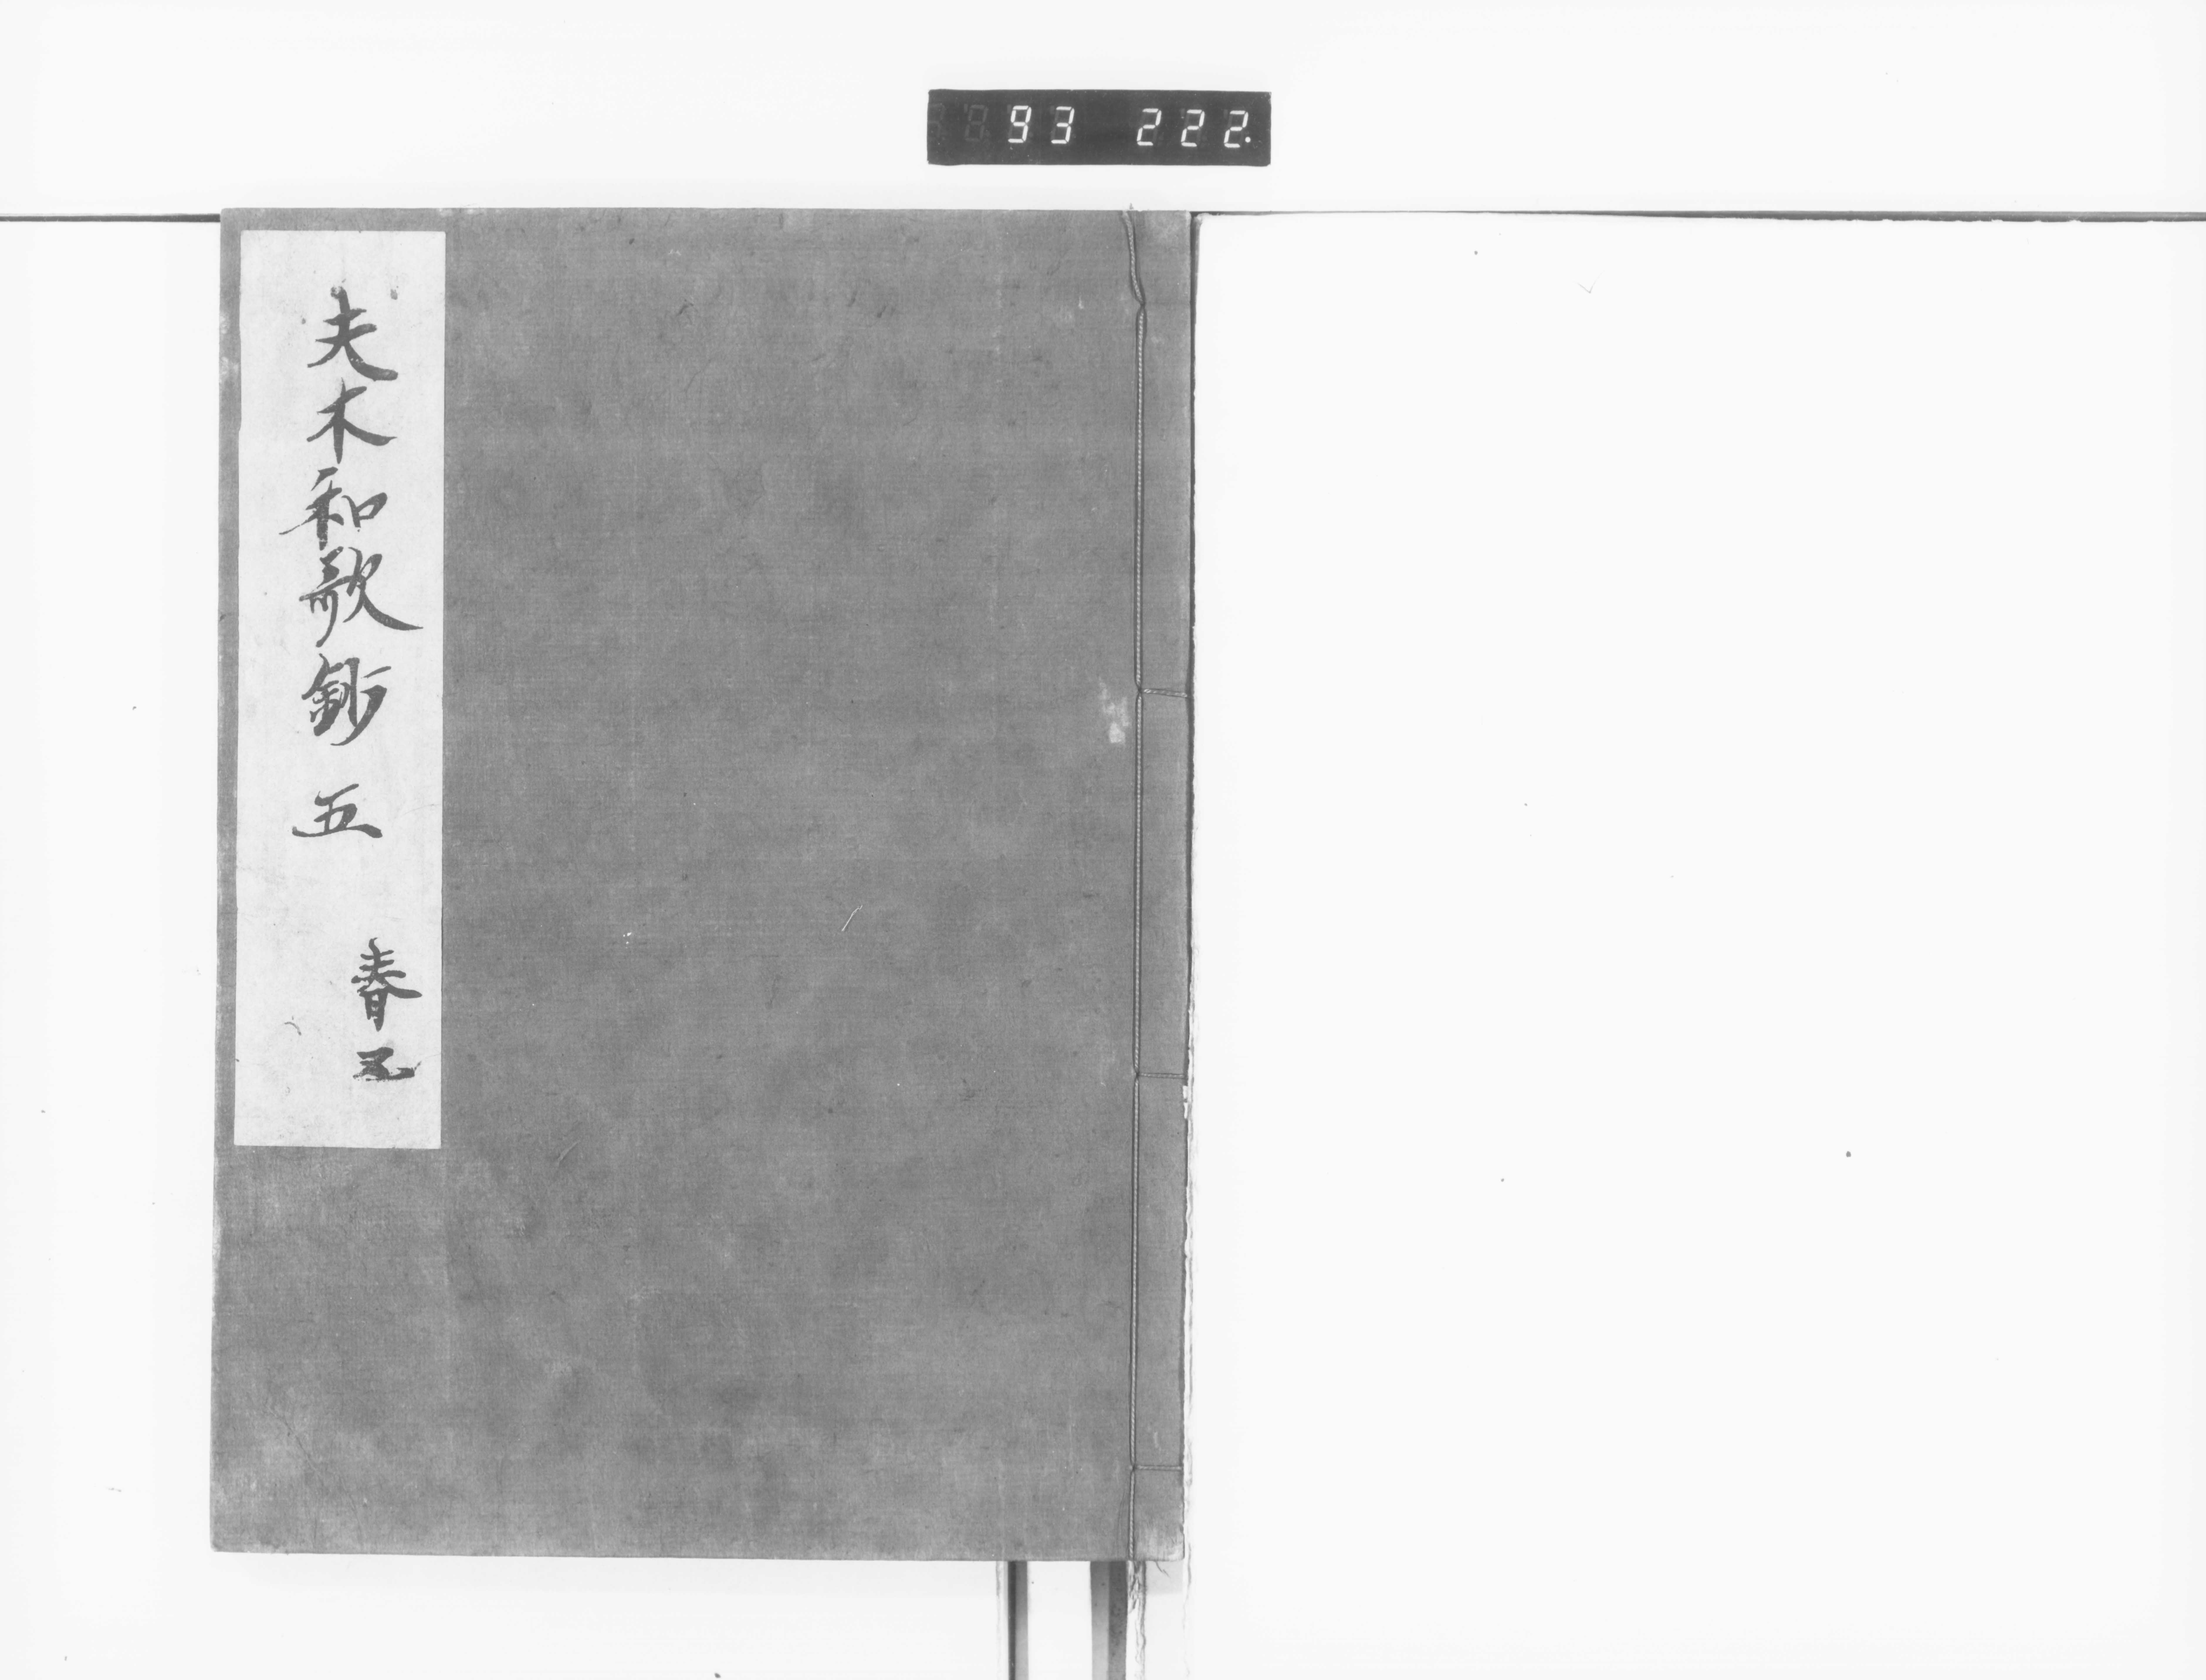 93 222.
夫木和歌鈔 五
春五